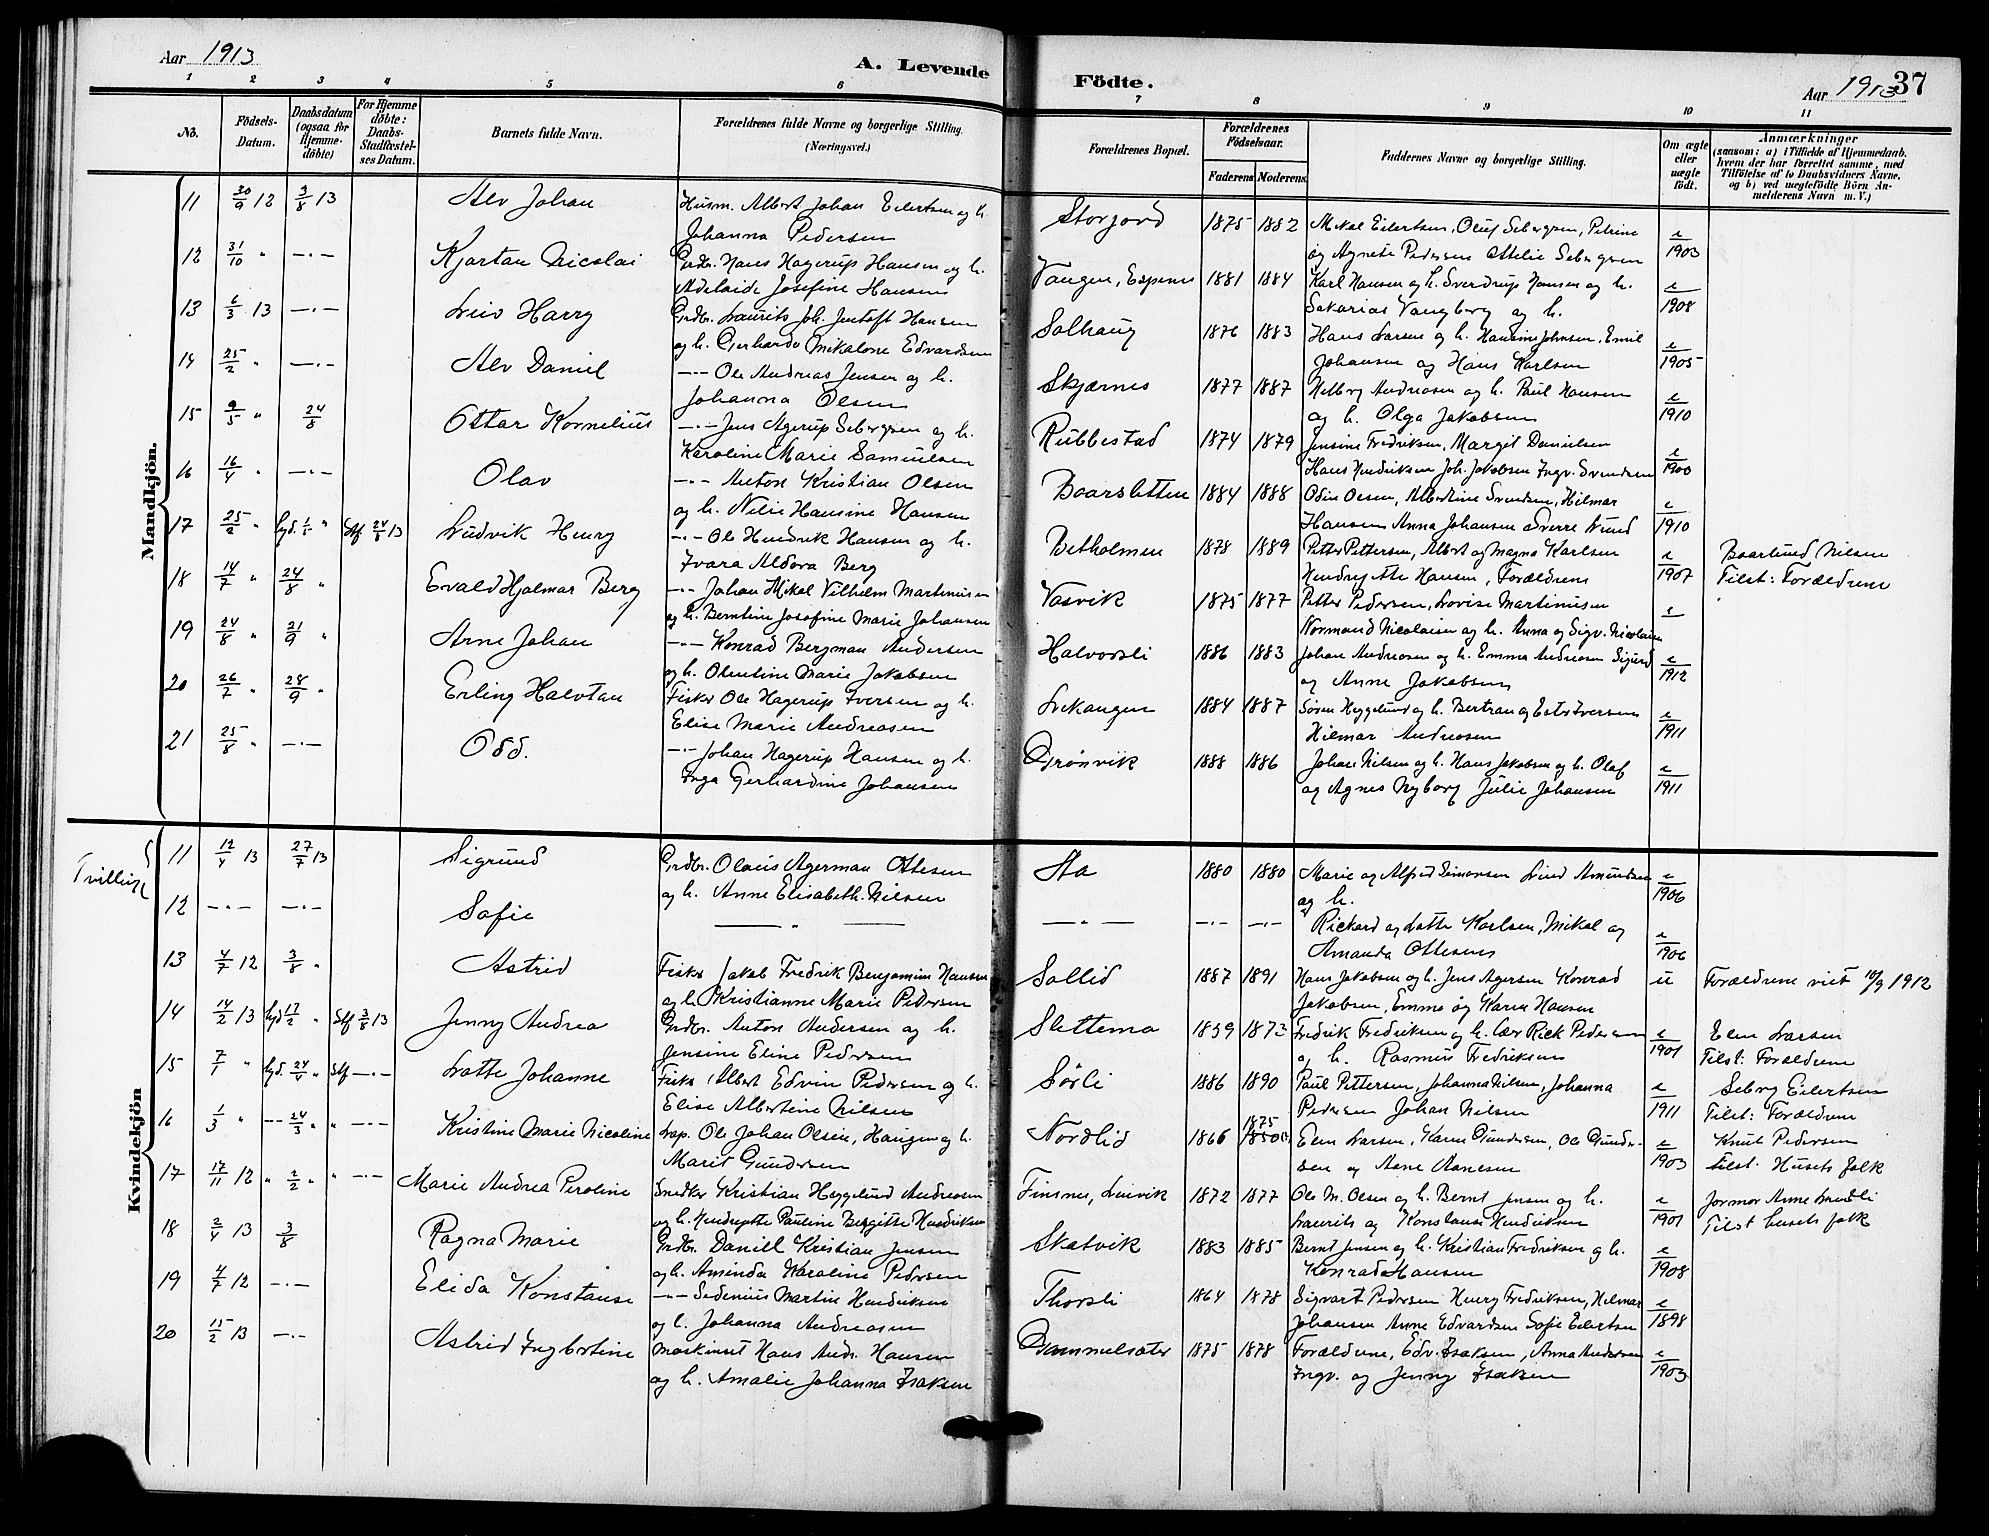 Aar 1913
A. Levende Födte.
Aar 1913 37
1 2 3 4 5 6 7 8 9 10 11
No.
Födsels-Datum.
Daabsdatum (ogsaa for Hjemme-döbte)
For Hjemme döbte: Daabs-Stadfæstel-ses Datum.
Barnets fulde Navn.
Forældrenes fulde Navne og borgerlige Stilling. (Næringsvei.)
Forældrenes Bopæl.
Forældrenes Födselsaar.
Faderens Moderens
Faddernes Navne og borgerlige Stilling.
Om ægte eller uægte födt.
Anmærkninger
(saasom: a) i Tilfælde af Hjemmedaab. hvem der har forrettet samme, med Tilföielse af to Daabsvidners Navne. og b) ved uægtefödte Börn An-melderens Navn m. V.)
Mandkjön.
11 30/9 12 3/8 13 Alv Johan Husm. Albert Johan Eilertsen og h. Storjord 1875 1882 Mikal Eilertsen, Oluf Sebergsen, Petrine e
Johanna Pedersen og Agnete Pedersen Ottelie Sebergsen 1903
12 31/10 " —·— Kjartan Nicolai Grdbr. Hans Hagerup Hansen og h. Vangen, Espenes 1881 1884 Karl Hansen og h. Sverdrup Hansen og h. e
Adelaide Josefine Hansen Sakarias Vangberg og h. 1908
13 6/3 13 —·— Leiv Harry Grdbr. Laurits Joh. Jentoft Hansen Solhaug 1876 1883 Hans Larsen og h. Hansine Johnsen, Emil e
og h. Gjerharde Mikalone Edvardsen Johansen og Hans Karlsen 1905
14 25/2 " —·— Alv Daniel —·— Ole Andreas Jensen og h. Skjærnes 1877 1887 Helberg Andreasen og h. Paul Hansen e
Johanna Olsen og h. Olga Jakobsen 1910
15 9/5 " 24/8 Ottar Kornelius —·— Jens Agerup Sebergsen og h. Rubbestad 1874 1879 Jensine Fredriksen, Margit Danielsen e
Karoline Marie Samuelsen Hans Hendriksen Joh. Jakobsen Ingv. Svendsen 1900
16 16/4 " —·— Olav —·— Anton Kristian Olsen Baarsletten 1884 1888 Odin Olsen, Albertine Svendsen, Hilmar e
og h. Nelie Hansine Hansen Hansen Anna Johansen Sverre Lund 1910
17 25/2 " Stf 24/8 13 Ludvik Henry —·— Ole Hendrik Hansen og h. Betholmen 1878 1889 Petter Pettersen, Albert og Magna Karlsen e Baarlund Nilsen
Ivara Aldora Berg Hendrejette Hansen, Forældrene 1907 Tilst: Forældrene
18 14/7 " 24/8 " Evald Hjalmar Berg —·— Johan Mikal Vilhelm Martinussen Vasvik 1875 1877 Petter Pedersen, Lovise Martinusen e
og h. Berntine Josefine Marie Johansen Normand Nicolaisen og h. Anna og Sigv. Nicolaisen
19 24/8 " 21/9 " Arne Johan —·— Konrad Bergman Andersen Halvorsli 1886 1883 Johan Andreasen og h. Emma Andreasen Sigurd e
og h. Olentine Marie Jakobsen og Anne Jakobsen 1912
20 26/7 " 28/9 " Erling Halvtan Fisker Ole Hagerup Iversen og h. Lekangen 1884 1887 Sören Heggelund og h. Bertran og Ester Iversen e
Elise Marie Andreasen Hilmar Andreasen 1911
21 25/8 " —·— Odd. —·— Johan Hagerup Hansen og h. Grönvik 1888 1886 Johan Nilsen og h. Hans Jakobsen og h. Olaf e
Inga Gerhardine Johansen og Agnes Nyborg Julie Johansen 1911
Kvindekjön
Tvillinge
11 12/4 13 27/7 13 Sigrund Grdbr. Olaus Agerman Ottesen Sta 1880 1880 Marie og Alfred Simonsen Lind Amundsen e
og h. Anne Elisabeth Nilsen og h. 1906
12 —·— —·— Sofie — " — — " — —·— —·— Rickard og Lotte Karlsen, Mikal og e
Amanda Ottesen 1906
13 4/7 12 3/8 " Astrid Fisker Jakob Fredrik Benjamin Hansen Sollid 1887 1891 Hans Jakobsen og h. Jens Agersen Konrad u Forældrene viet 10/9 1912
og h. Kristianne Marie Pedersen Jakobsen, Emma og Karen Hansen
14 14/2 13 hjd 17/2 " Stf 3/8 13 Jenny Andrea Grdbr. Anton Andersen og h. Slettemo 1859 1873 Fredrik Fredriksen og h. Lær Rick Pedersen e Elen Larsen
Jensine Eline Pedersen og h. Rasmus Fredriksen 1901 Tilst: Forældrene
15 7/1 " hjd. 24/4 " Stf —·— Lotte Johanne Fisker Albert Edvin Pedersen og h. Sörli 1886 1890 Paul Pettersen, Johanna Nilsen, Johanna e Seberg Eilertsen
Elise Albertine Nilsen Pedersen Johan Nilsen 1911 Tilst: Forældrene
16 1/3 " -- 24/3 " " —·— Kristine Marie Nicoline Lap. Ole Johan Olsen, Haugen og h. Nordlid 1866 1875 Elen Larsen, Karen Gundersen, Ole Gunder- e Knut Pedersen
Marit Gundersen sen og Anne Aanesen 1903 Tilst: Husets folk
17 17/11 12 " 2/2 " " —·— Marie Andrea Peroline Snedker Kristian Heggelund Andreasen Finsnes, Leirvik 1872 1877 Ole M. Olsen og h. Bernt Jensen og h. e Jormor Anne Lundli
og h. Hendrejette Pauline Bergitte Hendriksen Laurits og Konstanse Hendriksen 1901 Tilst husets folk
18 2/4 13 3/8 Ragna Marie Grdbr. Daniel Kristian Jensen Skatvik 1883 1885 Bernt Jensen og h. Kristian Fredriksen og h. e
og h. Aminda Karoline Pedersen Konrad Hansen 1908
19 4/7 12 —·— Elida Konstanse —·— Sedenius Martin Hendriksen Thorsli 1864 1878 Sigvart Pedersen Henry Fredriksen, Hilmar e
og h. Johanna Andreasen Johansen Anne Edvardsen Sofie Eilertsen 1898
20 15/2 13 —·— Astrid Ingbertine Maskinist Hans Andr. Hansen Gammelsæter 1875 1878 Forældrene, Edv. Isaksen, Anna Andersen e
og h. Amalie Johanna Isaksen Ingv. og Jenny Isaksen 1903